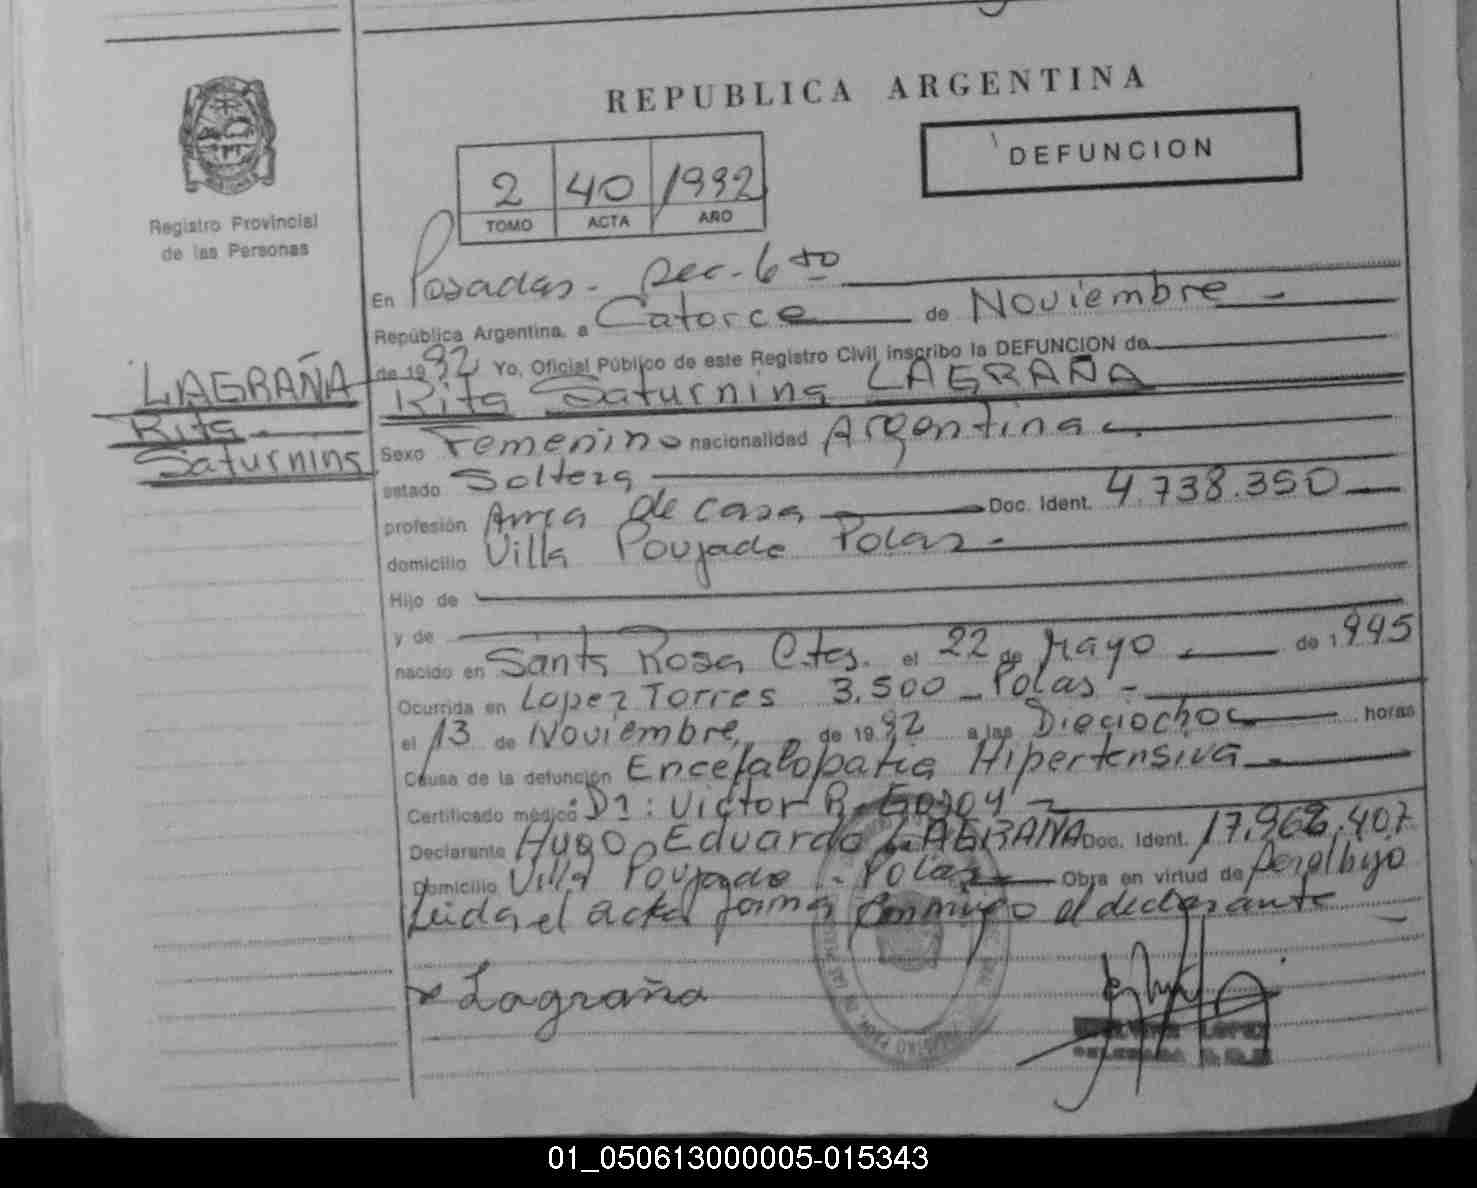 REPUBLICA ARGENTINA
DEFUNCION
2 40 1992
TOMO ACTA AÑO
Registro Provincial
de las Personas
En Posadas - Sec. 6to
República Argentina, a Catorce de Noviembre -
de 1992 Yo, Oficial Público de este Registro Civil inscribo la DEFUNCION de
LAGRAÑA
Rita -
Saturnina
Rita Saturnina LAGRAÑA
Sexo Femenino nacionalidad Argentina -.
estado Soltera
profesión Ama de casa Doc. Ident. 4.738.350
domicilio Villa Poujade Pdas -
Hijo de
y de
nacido en Santa Rosa Ctes. el 22 de Mayo de 1.945
Ocurrida en Lopez Torres 3.500 - Pdas -
el 13 de Noviembre de 1992 a las Dieciocho horas
Causa de la defunción Encefalopatia Hipertensiva
Certificado médico: Dr: Victor R. Godoy -
Declarante Hugo Eduardo LAGRAÑA Doc. Ident. 17.968.407
Domicilio Villa Poujade - Pdas Obra en virtud de ser el hijo
Leida el acta firma conmigo el declarante
x Lagraña
LOPEZ
01_050613000005-015343